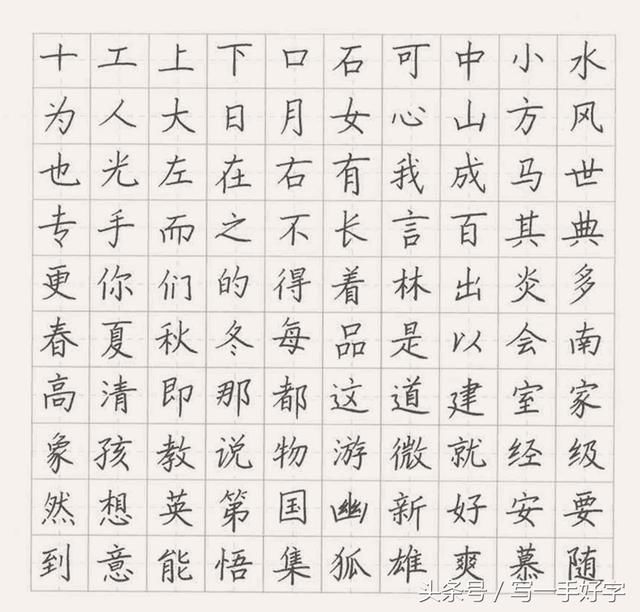 十工上下口石可中小水
为人大日月女心山方风
也光左在右有我成马世
专手而之不长言百其典
更你们的得着林出炎多
春夏秋冬每品是以会南
高清即那都这道建室家
象孩教说物游微就经级
然想英第国幽新好安要
到意能悟集狐雄爽慕随
头条号／写一手好字